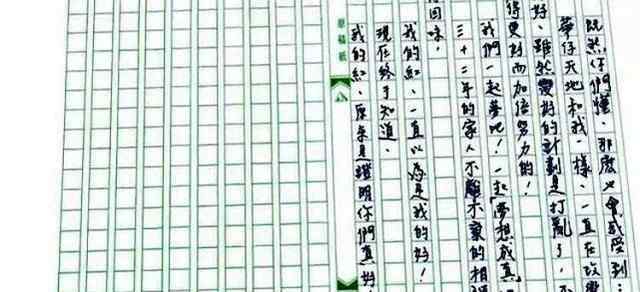 既然你們懂、那麼也會感受到：
華仔天地和我一樣、一直在改
好、雖然變好的計劃是打亂了、不
得更好而加倍努力的！
我們一起夢吧！一起「夢想成真
三十二年的家人不離不棄的相
回味，
我的紅、一直以為是我的好！
現在終于知道、
我的紅、原來是證明你們真好
原稿紙